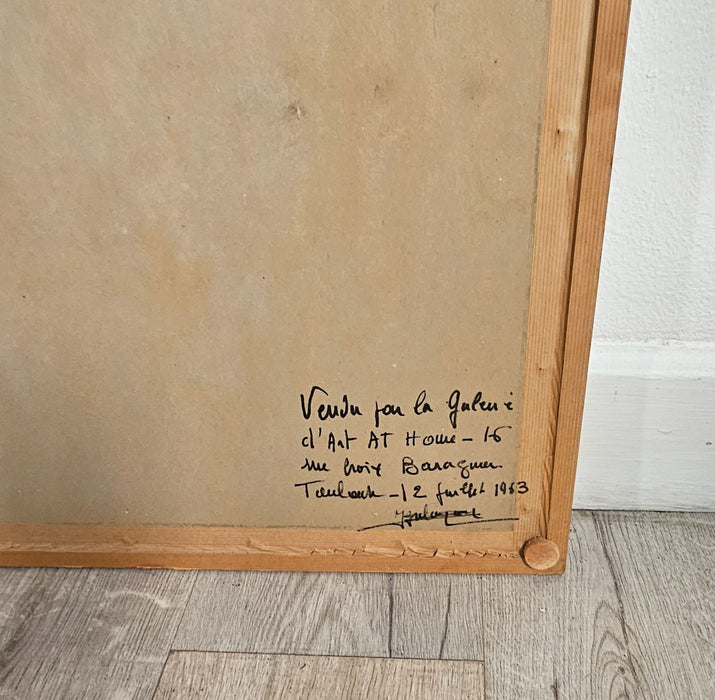 Vendu par la Galerie
d'Art AT Home - 16
rue Croix Baragnon
Toulouse - 12 juillet 1963